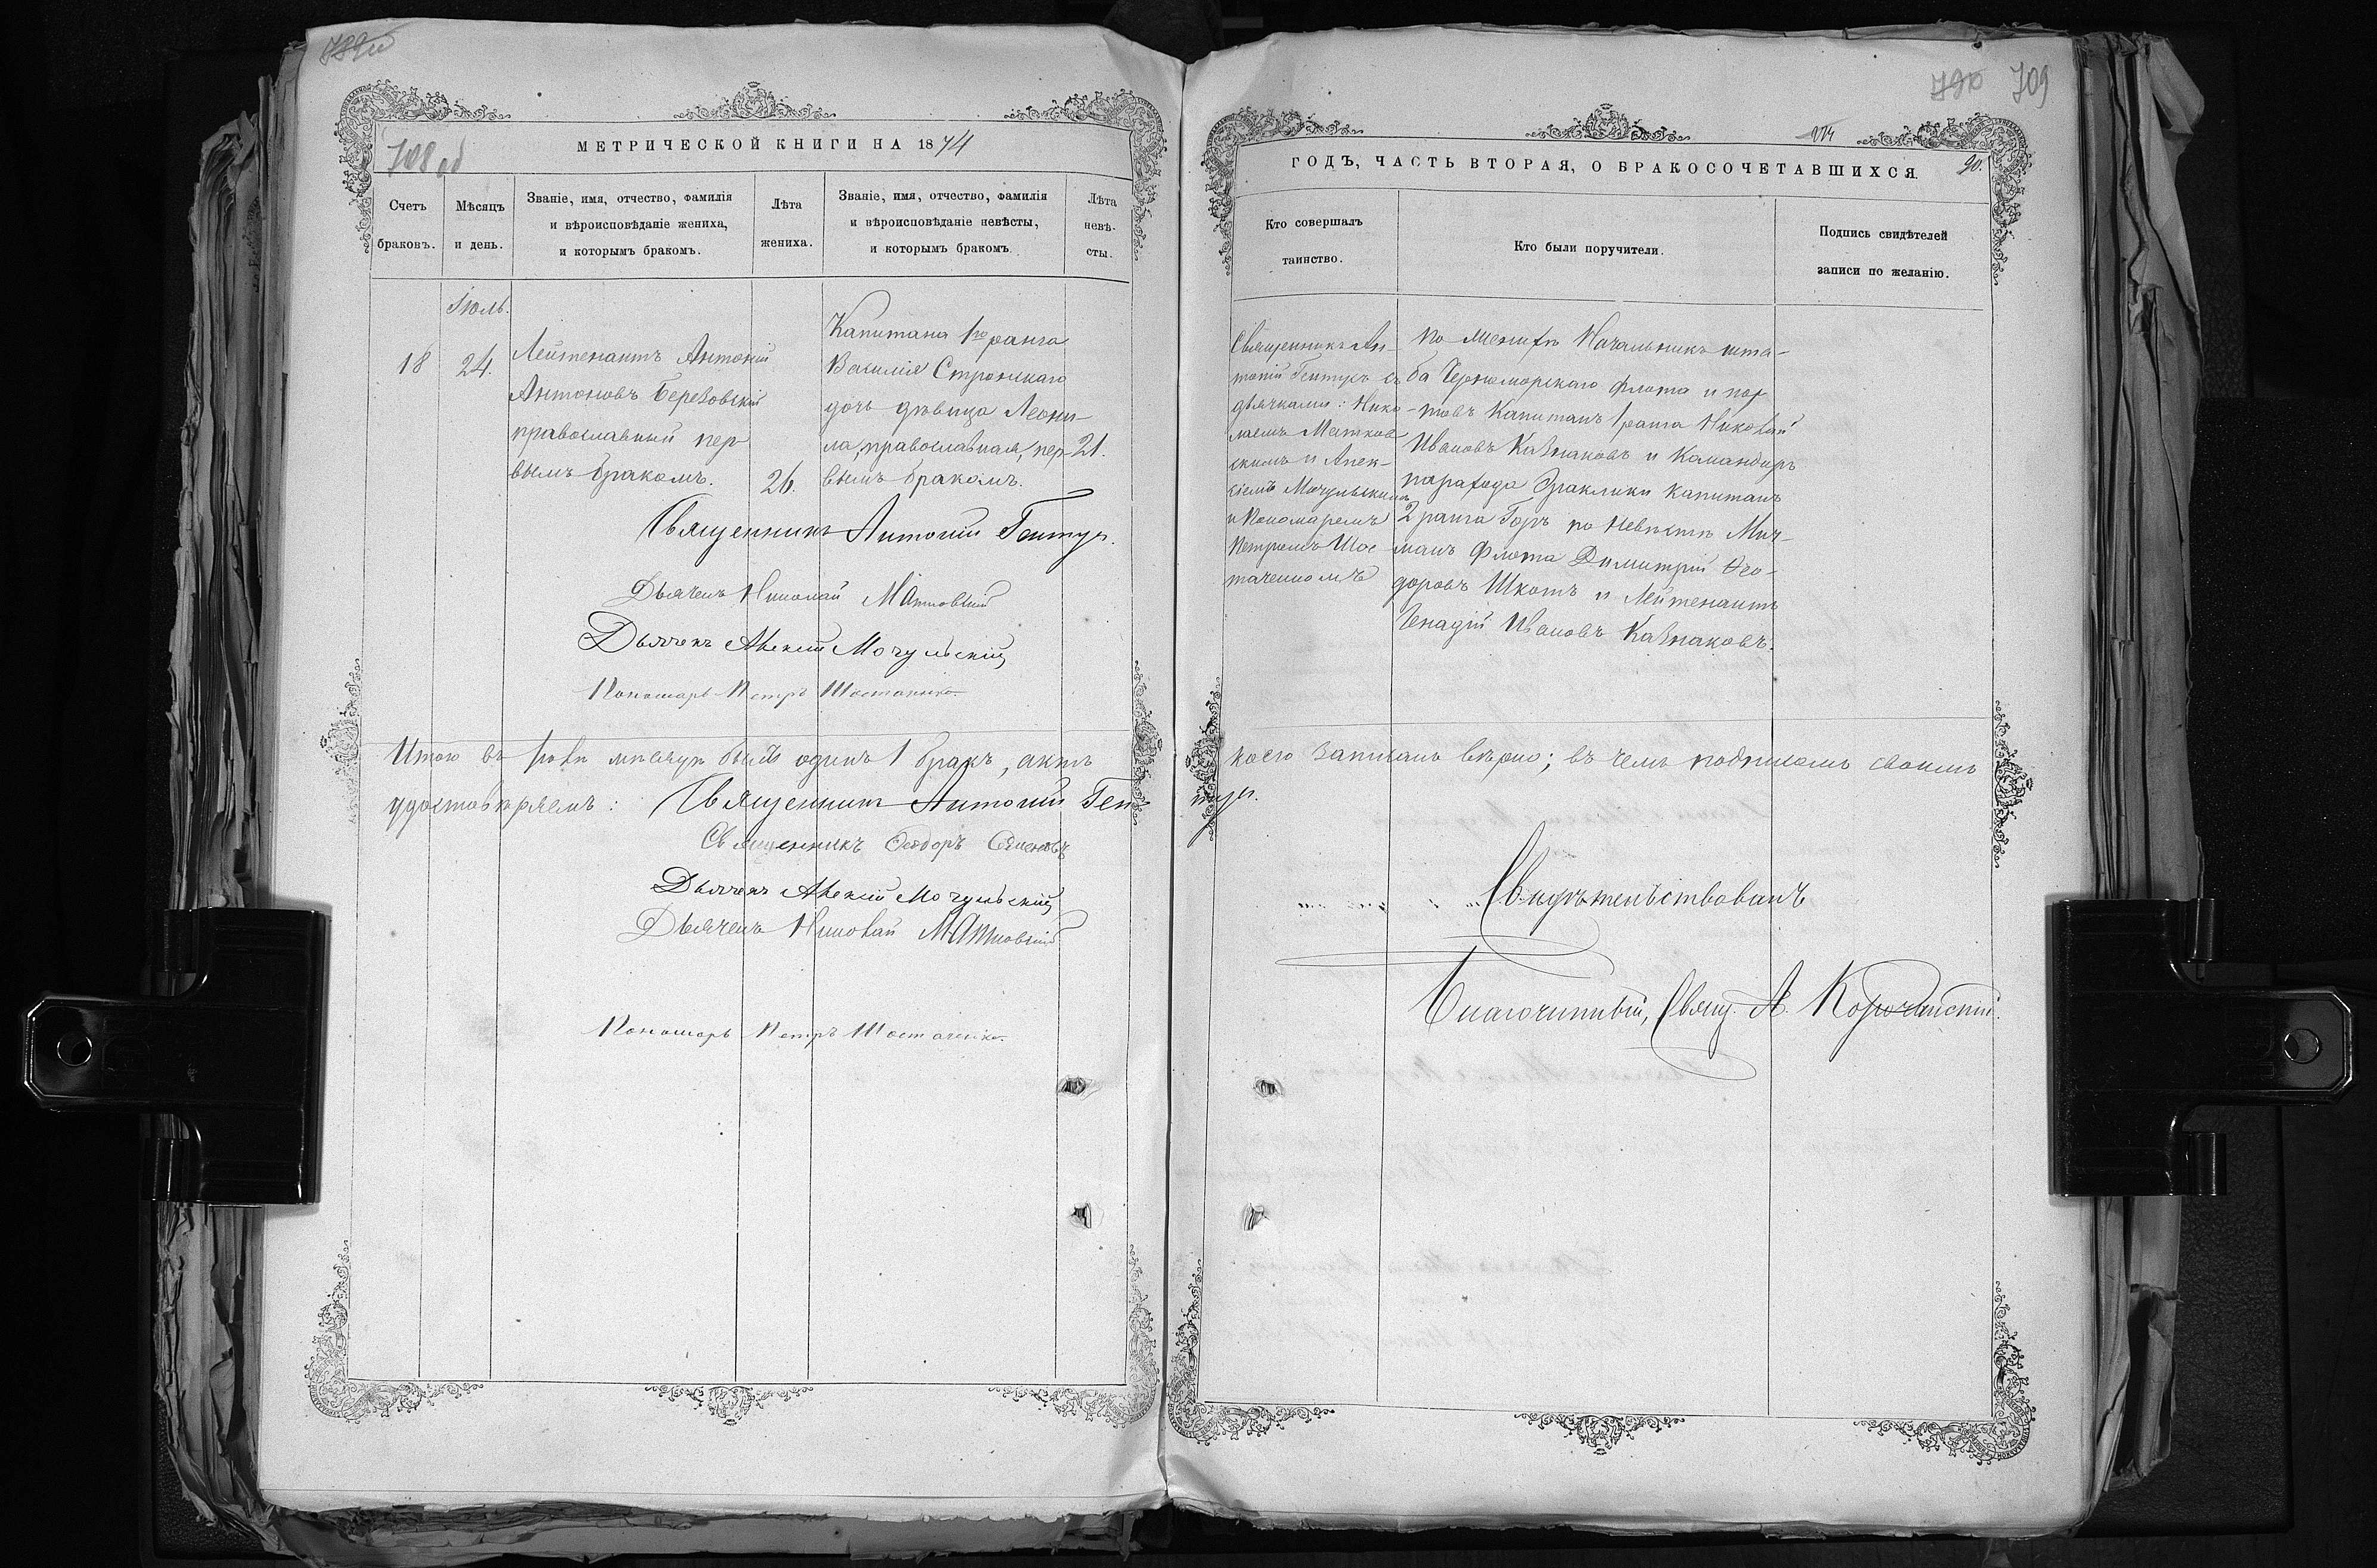 789об
708 об
МЕТРИЧЕСКОЙ КНИГИ НА 1874
Счетъ
браковъ.
Мѣсяцъ
и день.
Званіе, имя, отчество, фамилія
и вѣроисповѣданіе жениха,
и которымъ бракомъ.
Лѣта
жениха.
Званіе, имя, отчество, фамилія
и вѣроисповѣданіе невѣсты,
и которымъ бракомъ.
Лѣта
невѣ-
сты.
18
Іюль.
24.
Лейтенантъ Антоній
Антоновъ Березовскій
православный пер
вымъ бракомъ.
26.
Капитана 1го ранга
Василія Стронскаго
дочь дѣвица Леони-
ла, православная, пер-
вымъ бракомъ.
21.
Священникъ Антоній Гентуг.
Дьячекъ Николай Матковскій
Дьячекъ Алексій Мочульскій
Пономарь Петръ Шостаченко
Итого въ Іюлѣ мѣсяцѣ былъ одинъ 1 бракъ, актъ
удостовѣряемъ: Священникъ Антоній Ген-
Священникъ Ѳеодоръ Семеновъ
Дьячекъ Алексій Мочульскій
Дьячекъ Николай Матковскій
Пономарь Петръ Шостаченко
790 709
274
ГОДЪ, ЧАСТЬ ВТОРАЯ, О БРАКОСОЧЕТАВШИХСЯ.
90.
Кто совершалъ
таинство.
Кто были поручители.
Подпись свидѣтелей
записи по желанію.
Священникъ Ан-
тоній Гентугъ съ
дьячками: Нико-
лаемъ Матков
скимъ и Алек-
сіемъ Мочульскимъ
и Пономаремъ
Петромъ Шос
таченкомъ
по Женихѣ Начальникъ шта-
ба Черноморскаго флота и пор
-товъ Капитанъ 1 ранга Николай
Ивановъ Казнаковъ и Командиръ
парахода Эраклики Капитанъ
2 ранга Горъ по Невѣстѣ Мич-
манъ Флота Димитрій Ѳео-
доровъ Шкотъ и Лейтенантъ
Генадій Ивановъ Казнаковъ.
коего записанъ вѣрно; въ чемъ подписомъ своимъ
туг.
Свидѣтельствовалъ
Благочинный, Свящ. А. Корочанскій.